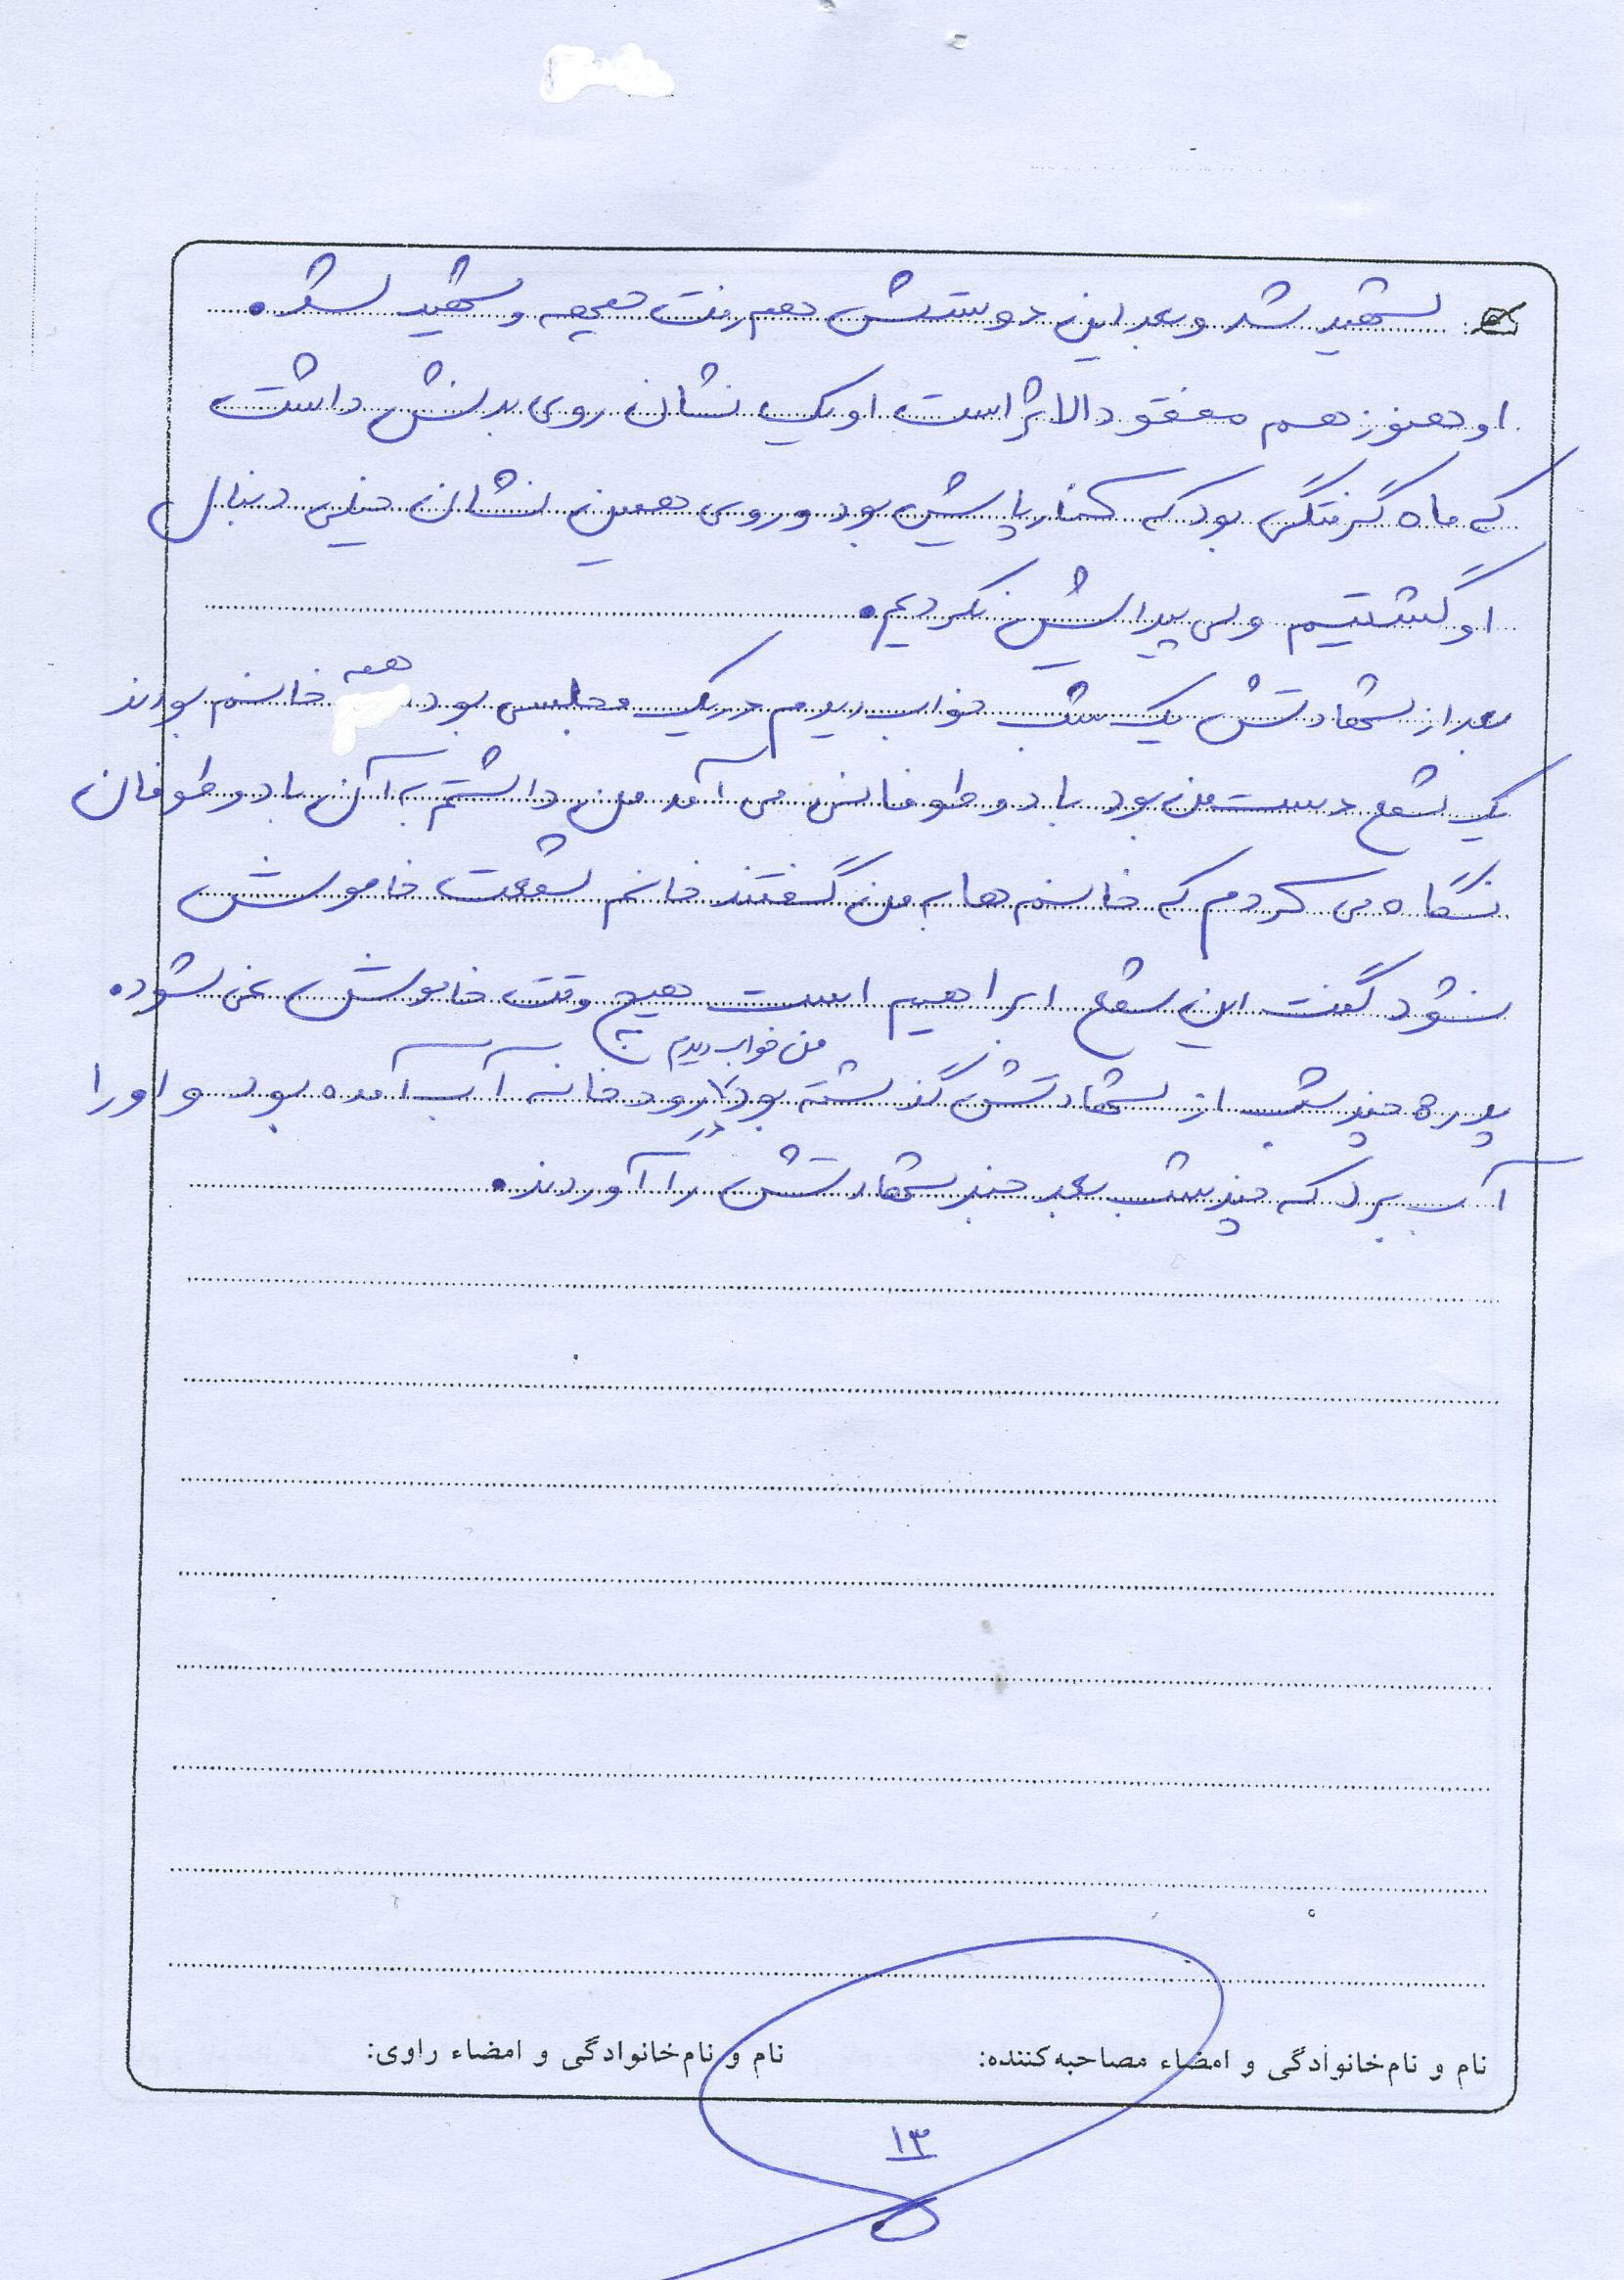 شهید شد و بعد این دوستش هم رفت جبهه و شهید شد.
او هنوز هم مفقودالاثر است او یک نشان روی بدنش داشت
که ماه گرفتگی بود که کنار پایش بود و روی همین نشان خیلی دنبال
او گشتیم ولی پیدایش نکردیم.
بعد از شهادتش یک شب خواب دیدم در یک مجلسی بود همه خانم بودند
یک شمع دست من بود باد و طوفانی می آمد من داشتم به آن باد و طوفان
نگاه می کردم که خانم ها به من گفتند خانم شمعت خاموش
نشود گفت این شمع ابراهیم است هیچ وقت خاموش نمی شود.
من خواب دیدم
پدره چند شب از شهادتش گذشته بود در رودخانه آب آمده بود و او را
آب برد که چند شب بعد خبر شهادتش را آوردند.
نام و نام‌خانوادگی و امضاء مصاحبه‌کننده: نام و نام‌خانوادگی و امضاء راوی:
۱۳